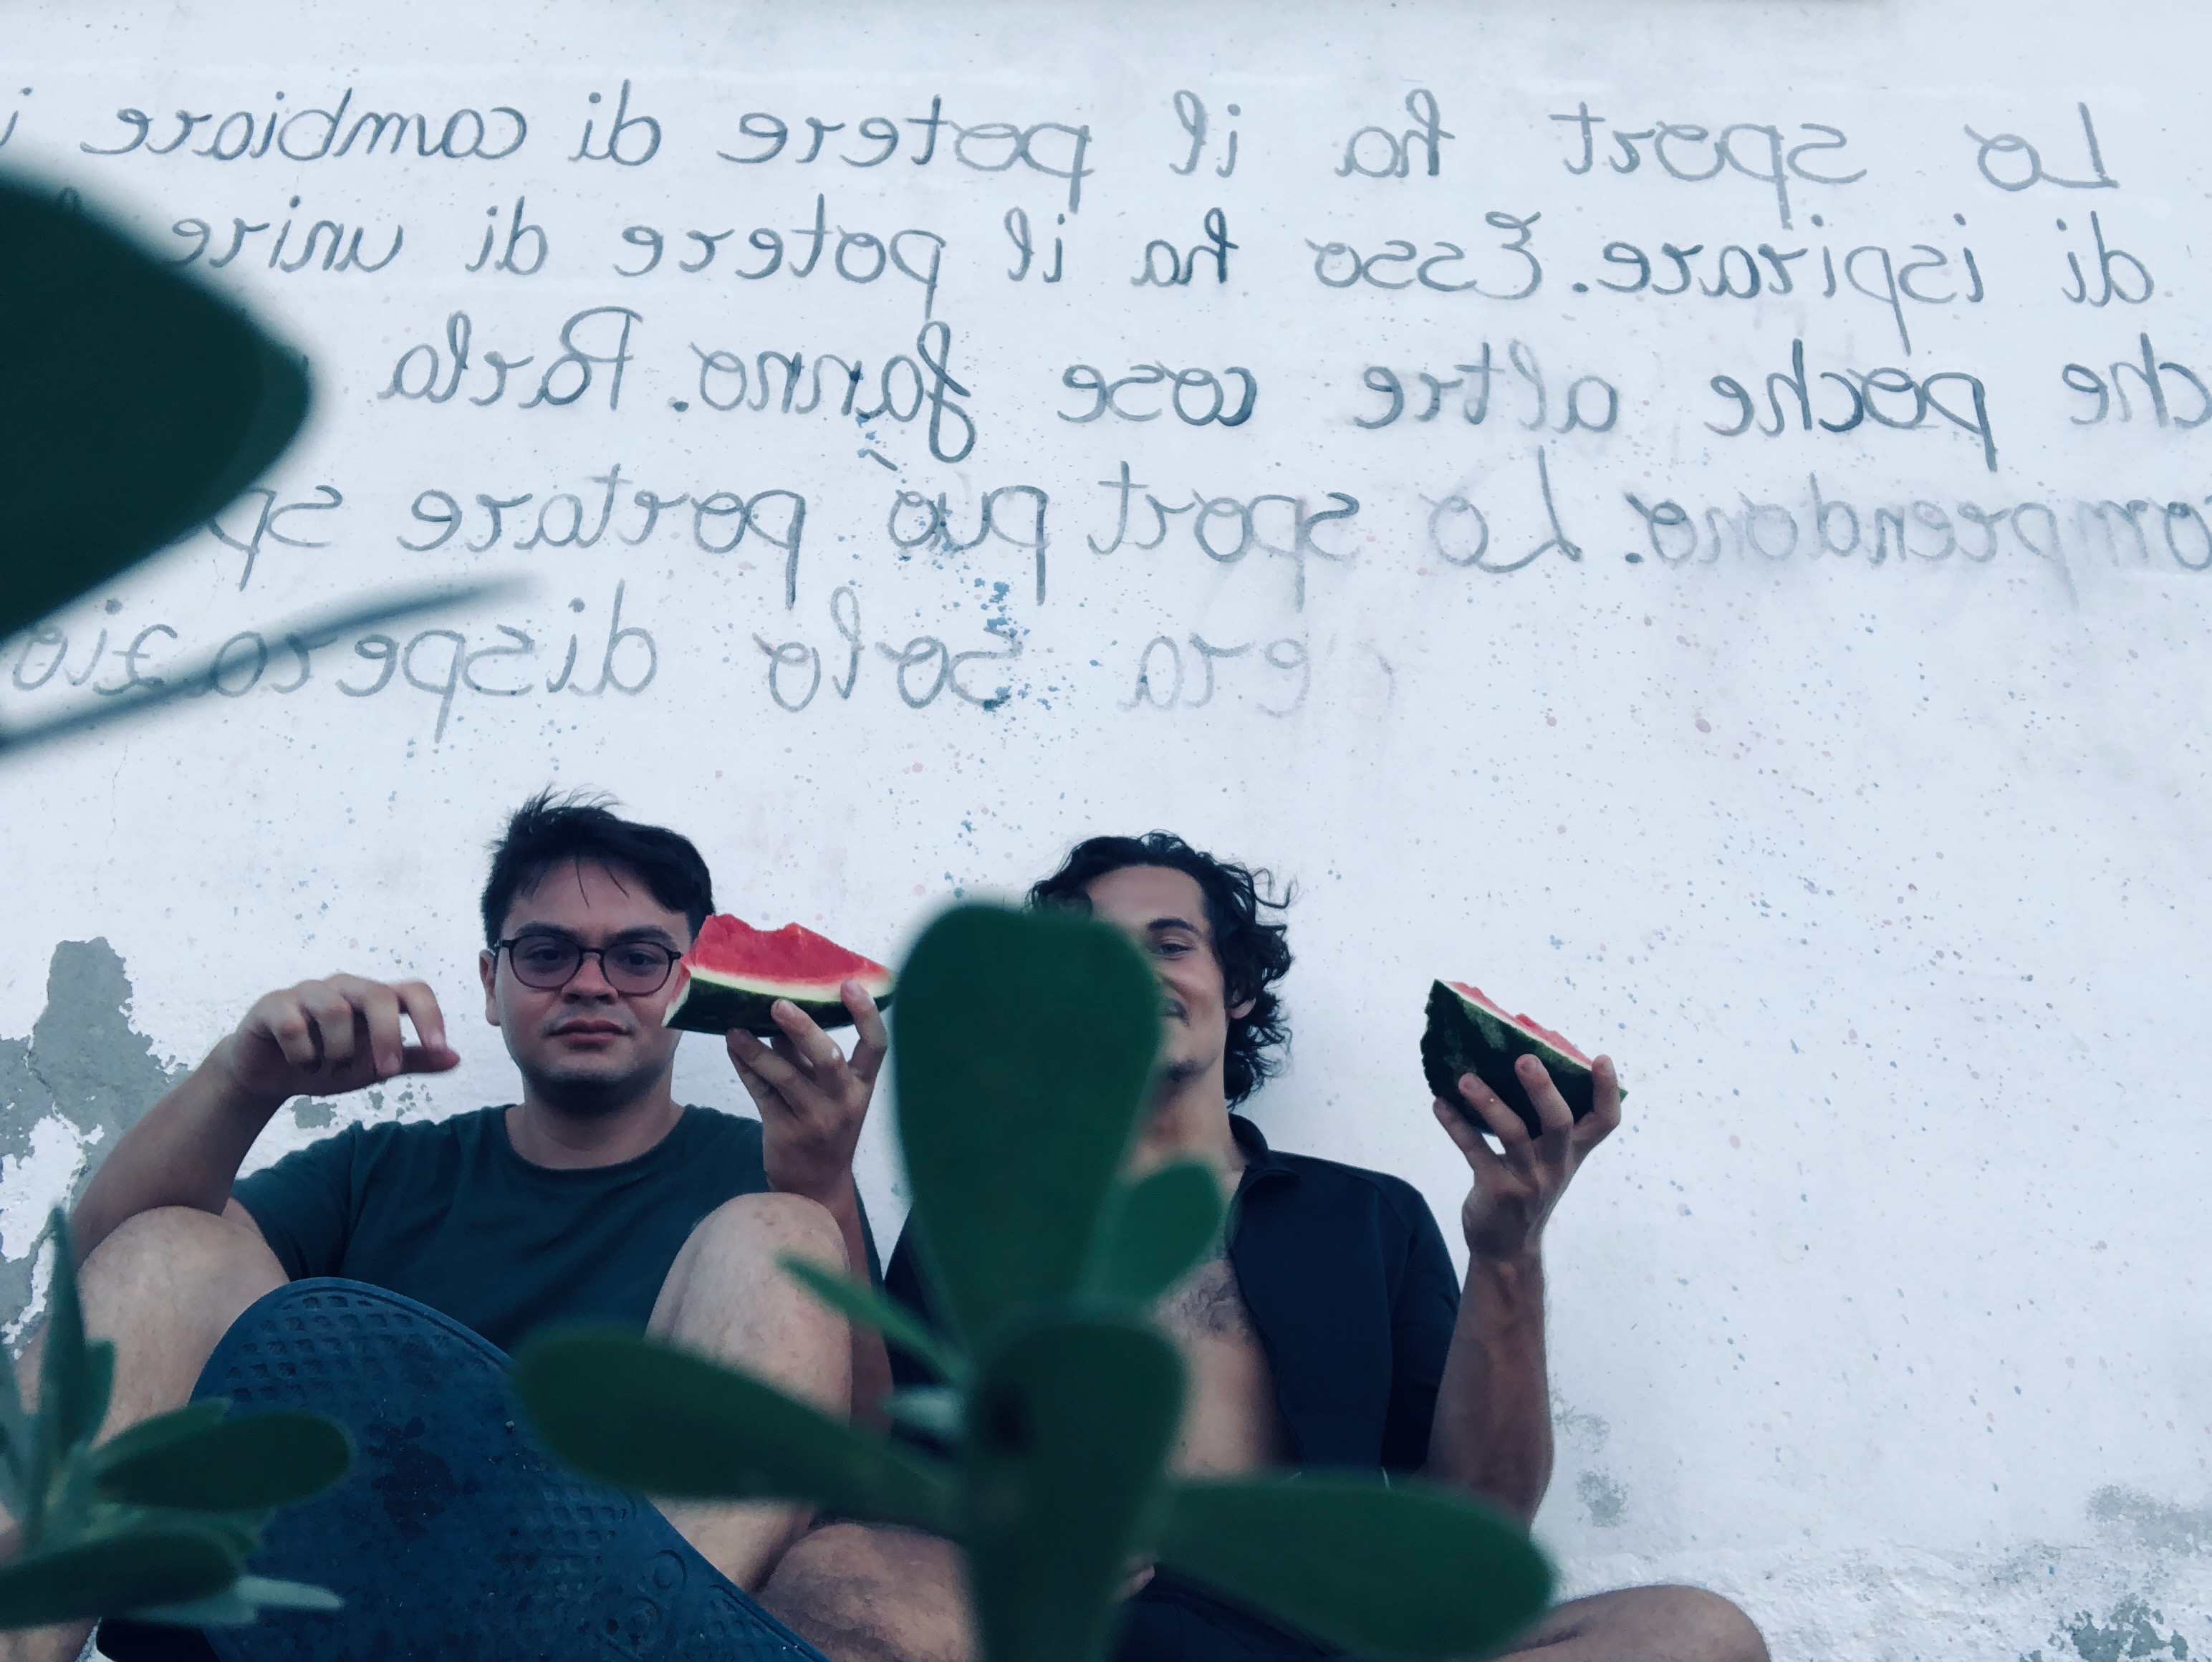 Lo sport ha il potere di cambiare i
di ispirare. Esso ha il potere di unire
che poche altre cose fanno. Parla
omprendono. Lo sport puó portare sp
c'era solo disperazio